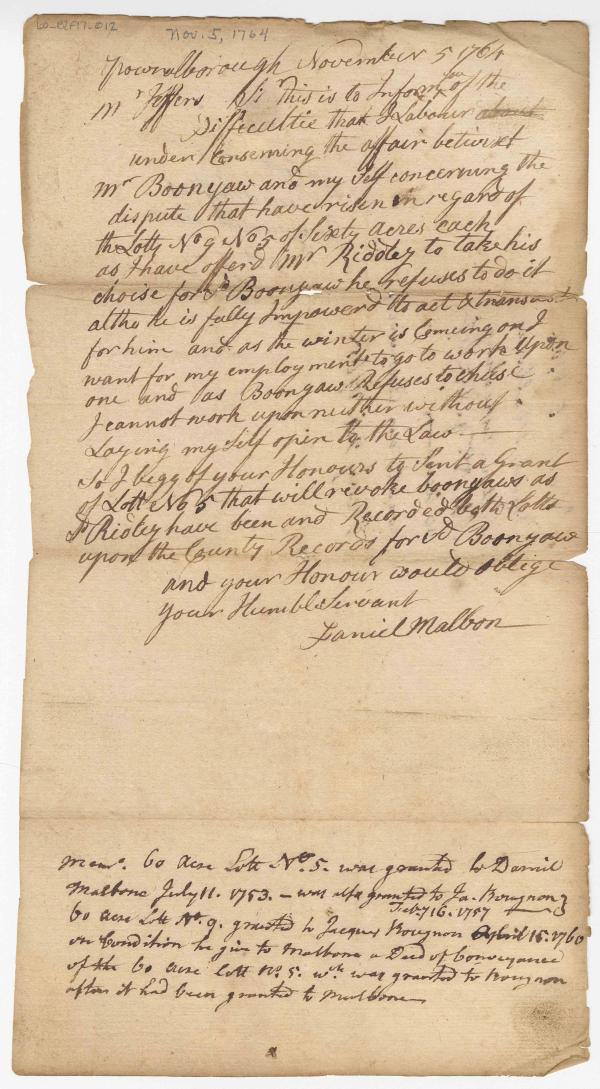 Lo-C2F17-012
Nov. 5, 1764
Pownalborough November 5 1764
Mr Jeffers Sr This is to Inform you of the
Diffecultie that I Labour about
under Conserning the affair betwixt
Mr Boonyaw and my Self concerning the
dispute that have risen in regard of
the Lotts No 9 No 5 of Sixty acres each
as I have offerd Mr Riddley to take his
choise for Sd Boonyaw he refuses to do it
altho he is fully Impowerd to act & transact
for him and as the winter is Comeing on I
want for my employment to go to work upon
one and as Boonyaw Refuses to chuse
I cannot work upon neither without
Laying my Self open to the Law
So I begg of your Honours to Sent a Grant
of Lott No 5 that will revoke boongaws as
Sd Ridley have been and Recorded both Lotts
upon the County Records for Sd Boonyaw
and your Honour would oblige
your Humble Servant
Daniel Malbon
Memo. 60 Acre Lott No. 5. was granted to Daniel
Malbone July 11. 1753. – was also granted to Ja. Bougnon
Feby 16. 1757
60 acre Lott No. 9. granted to Jacques Bougnon April 15. 1760
on Condition he give to Malbone a Deed of Conveyance
of the 60 acre Lott No. 5. wch was granted to Bougnon
after it had been granted to Malbone